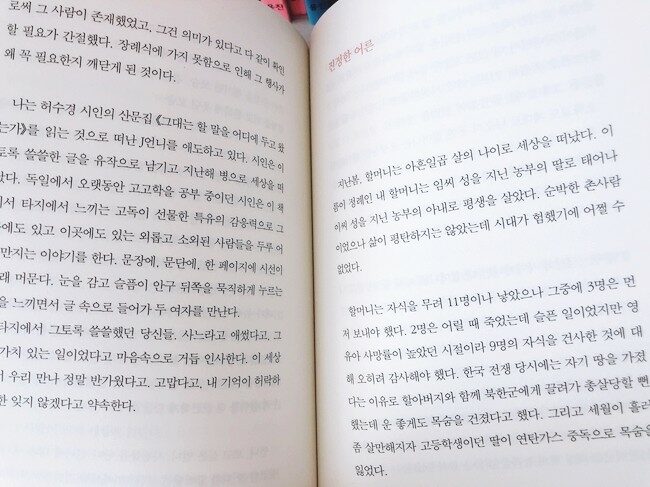 로써 그 사람이 존재했었고, 그건 의미가 있다고 다 같이 확인
할 필요가 간절했다. 장례식에 가지 못함으로 인해 그 행사가
왜 꼭 필요한지 깨닫게 된 것이다.
나는 허수경 시인의 산문집 《그대는 할 말을 어디에 두고 왔
는가》를 읽는 것으로 떠난 J언니를 애도하고 있다. 시인은 이
토록 쓸쓸한 글을 유작으로 남기고 지난해 병으로 세상을 떠
났다. 독일에서 오랫동안 고고학을 공부 중이던 시인은 이 책
에서 타지에서 느끼는 고독이 선물한 특유의 감응력으로 그
곳에도 있고 이곳에도 있는 외롭고 소외된 사람들을 두루 어
만지는 이야기를 한다. 문장에, 문단에, 한 페이지에 시선이
래 머문다. 눈을 감고 슬픔이 안구 뒤쪽을 묵직하게 누르는
을 느끼면서 글 속으로 들어가 두 여자를 만난다.
타지에서 그토록 쓸쓸했던 당신들, 사느라고 애썼다고, 그
가치 있는 일이었다고 마음속으로 거듭 인사한다. 이 세상
서 우리 만나 정말 반가웠다고. 고맙다고, 내 기억이 허락하
한 잊지 않겠다고 약속한다.
진정한 어른
지난봄, 할머니는 아흔일곱 살의 나이로 세상을 떠났다. 이
름이 정례인 내 할머니는 임씨 성을 지닌 농부의 딸로 태어나
이씨 성을 지닌 농부의 아내로 평생을 살았다. 순박한 촌사람
이었으나 삶이 평탄하지는 않았는데 시대가 험했기에 어쩔 수
없었다.
할머니는 자식을 무려 11명이나 낳았으나 그중에 3명은 먼
저 보내야 했다. 2명은 어릴 때 죽었는데 슬픈 일이었지만 영
유아 사망률이 높았던 시절이라 9명의 자식을 건사한 것에 대
해 오히려 감사해야 했다. 한국 전쟁 당시에는 자기 땅을 가졌
다는 이유로 할아버지와 함께 북한군에게 끌려가 총살당할 뻔
했는데 운 좋게도 목숨을 건졌다고 했다. 그리고 세월이 흘러
좀 살만해지자 고등학생이던 딸이 연탄가스 중독으로 목숨을
잃었다.